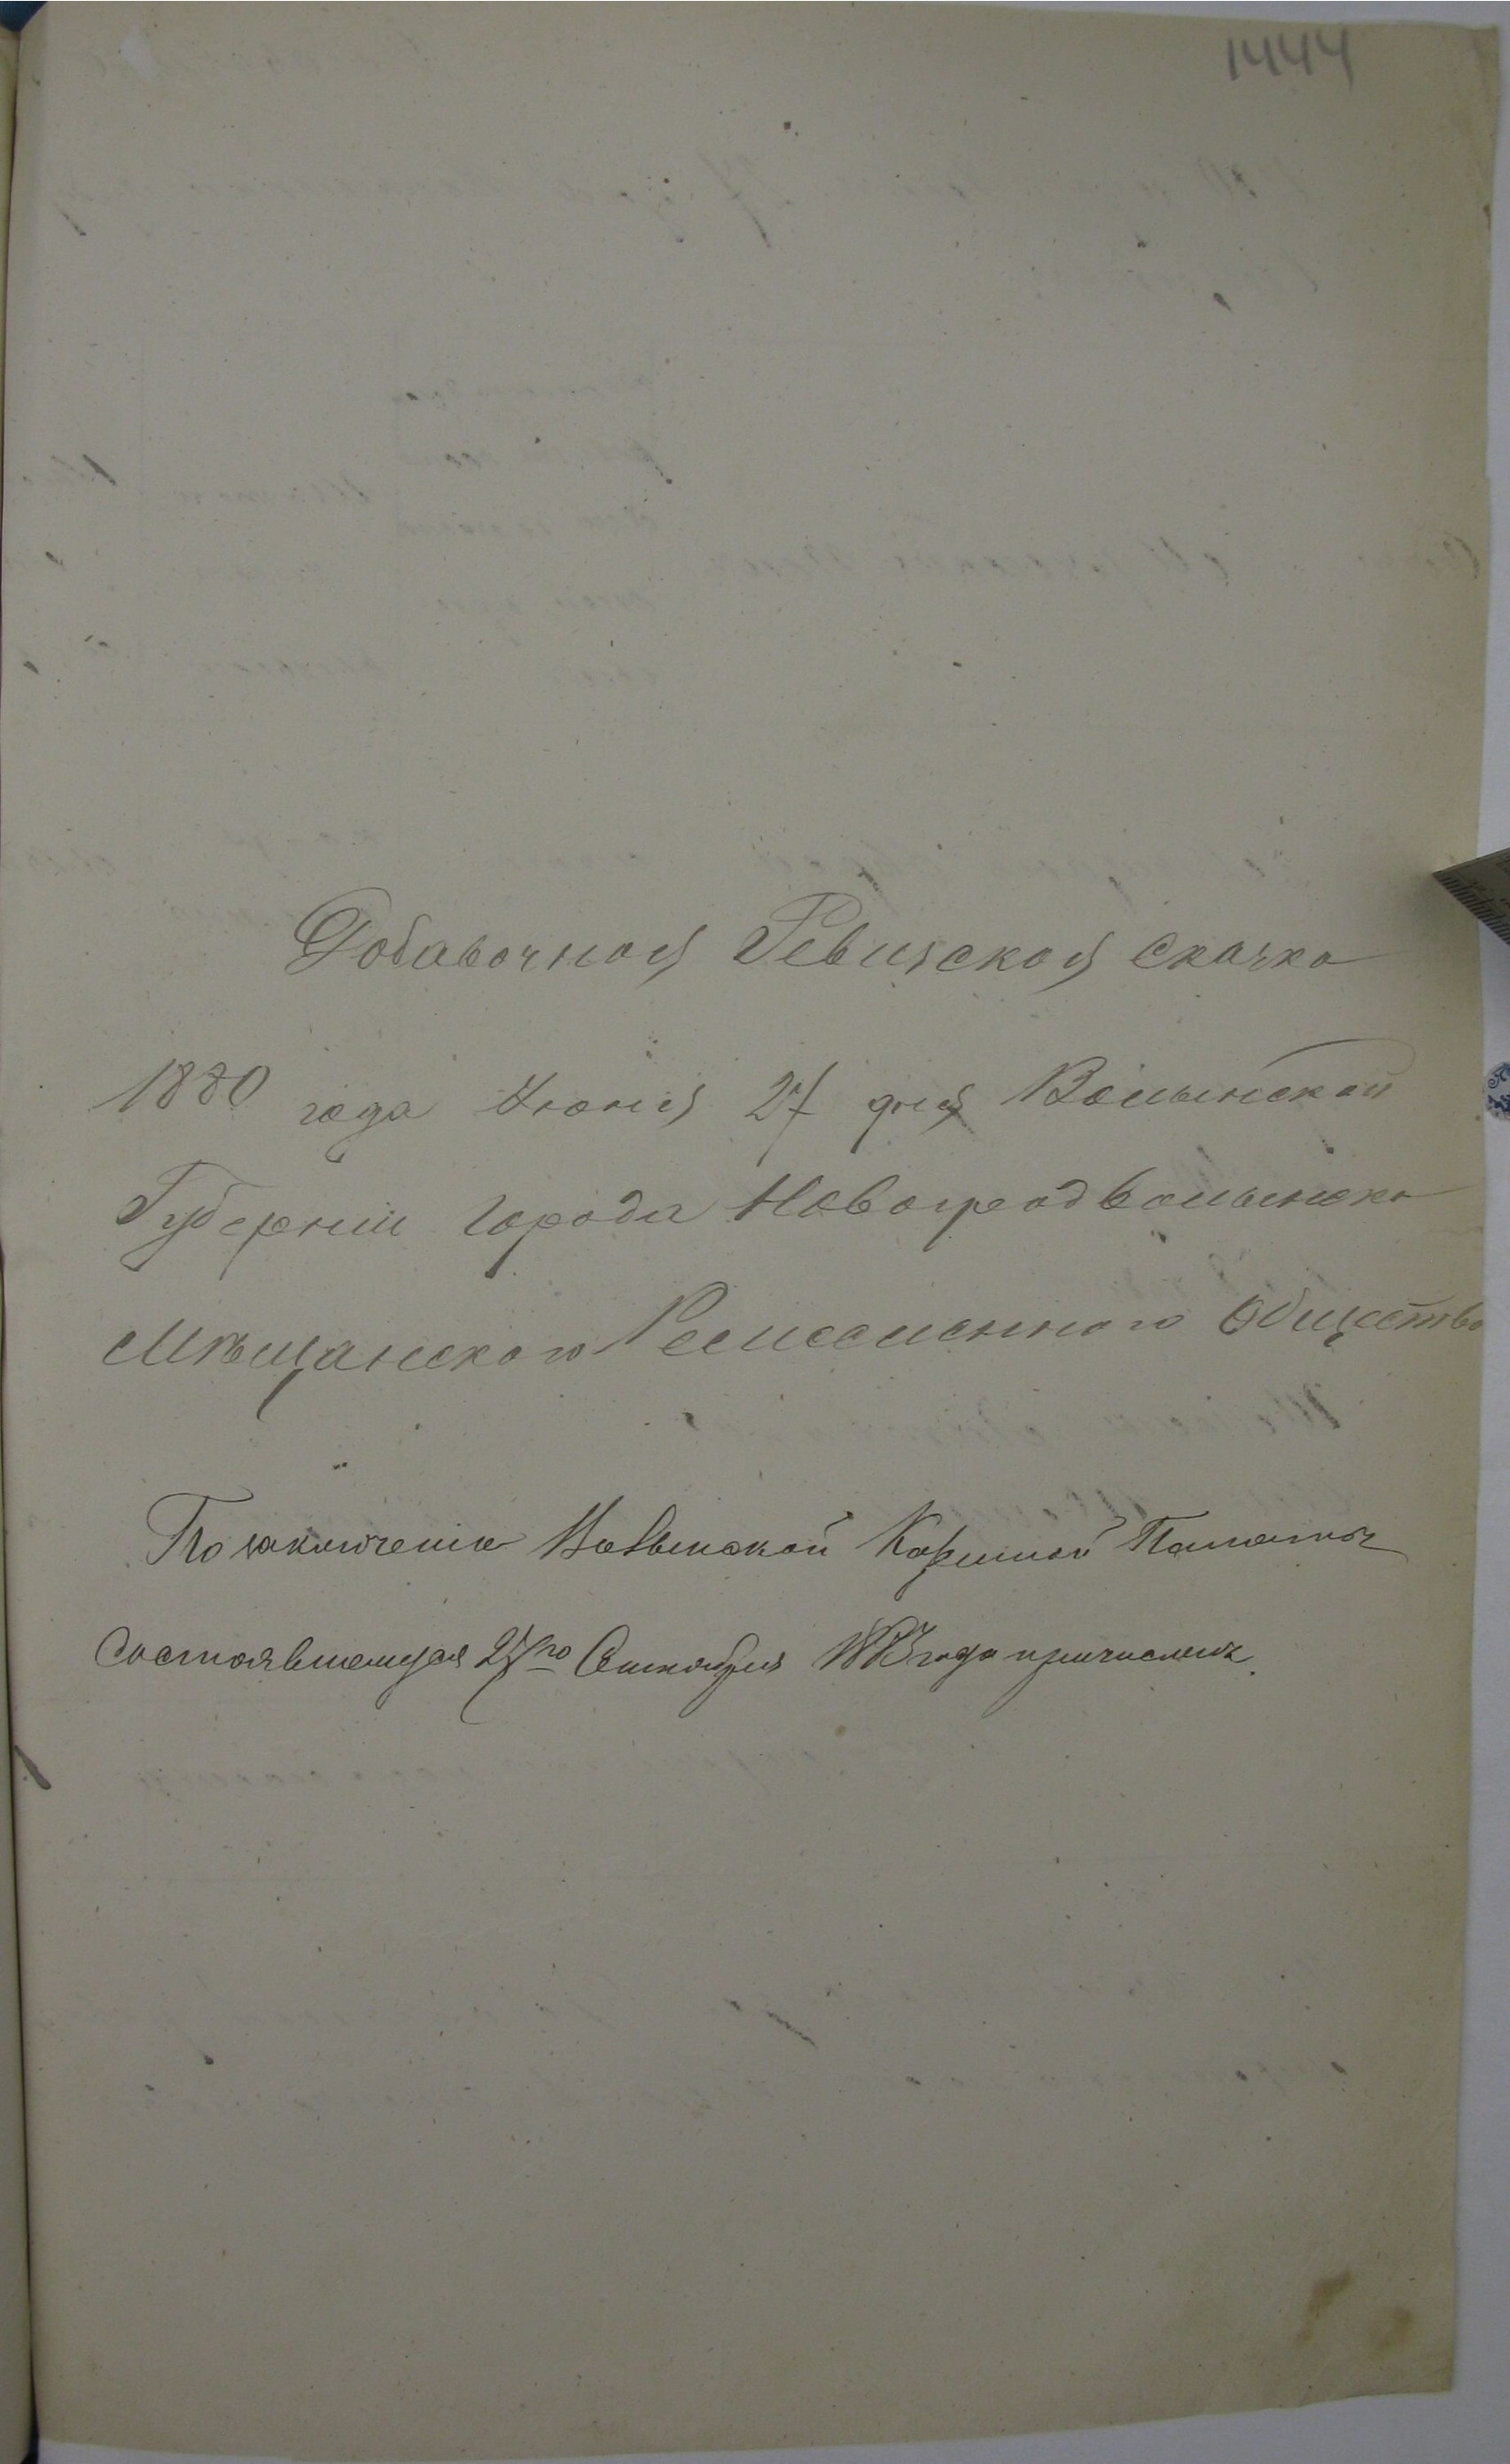 1444
Добавочная Ревизская Сказка
1880 года Июня 27 дня Волынской
Губернии города Новоградволынска
Мѣщанского Ремесленного Общества
По заключению Волынской Казенной Палаты
состоявшемуся 27го Сентября года причислены